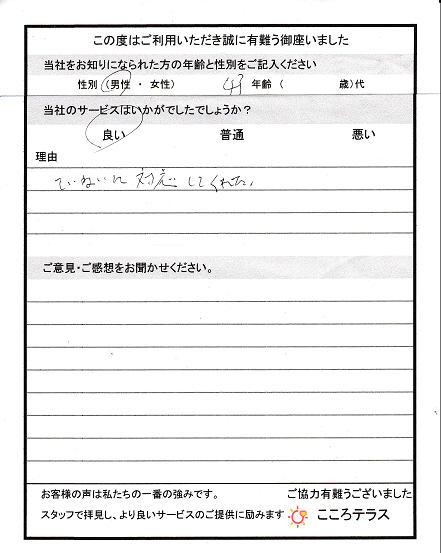 この度はご利用いただき誠に有難う御座いました
当社をお知りになられた方の年齢と性別をご記入ください
性別（男性 ・ 女性） 43 年齢（ 歳）代
当社のサービスはいかがでしたでしょうか？
良い 普通 悪い
理由
ていねいに対応してくれた。
ご意見・ご感想をお聞かせください。
お客様の声は私たちの一番の強みです。 ご協力有難うございました
スタッフで拝見し、より良いサービスのご提供に励みます こころテラス